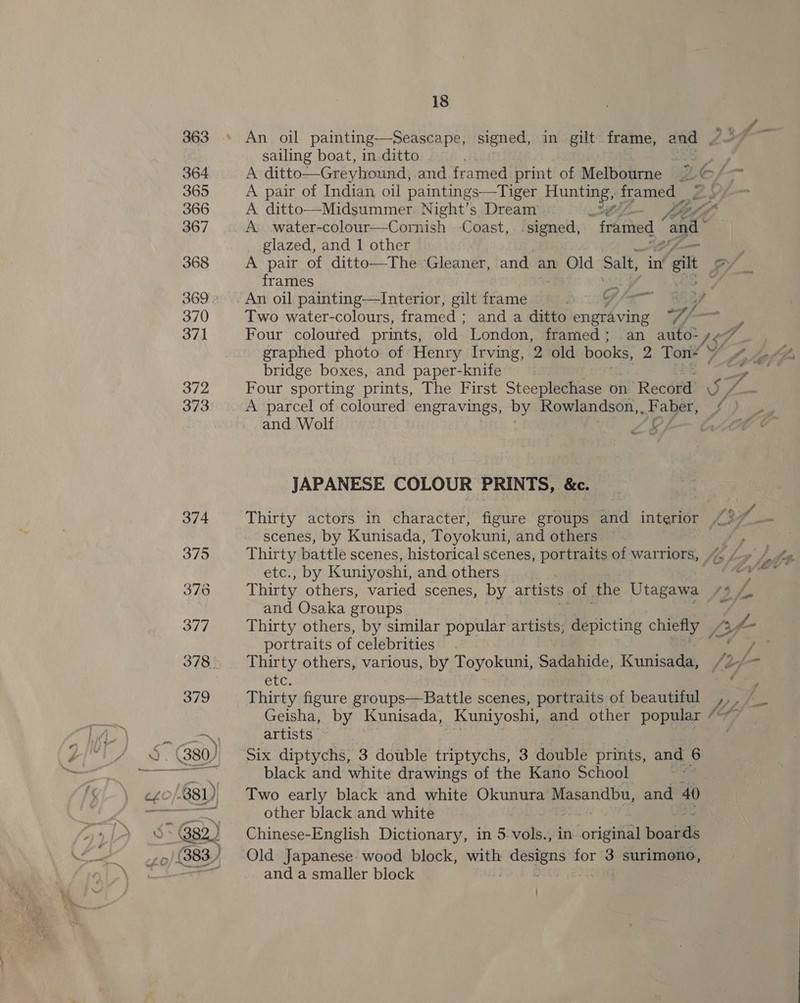 18
363 An oil painting—Seascape, signed, in gilt frame, and
sailing boat, in ditto
364 A ditto—Greyhound, and framed print of Melbourne
365 A pair of Indian oil paintings—Tiger Hunting, framed
366 A ditto—Midsummer Night's Dream
367 A water-colour—Cornish Coast, signed, framed and
glazed, and 1 other
368 A pair of ditto—The Gleaner, and an Old Salt, in gilt
frames
369 An oil painting—Interior, gilt frame
370 Two water-colours, framed ; and a ditto engraving
371 Four coloured prints, old London, framed ; an auto-
graphed photo of Henry Irving, 2 old books, 2 Ton
bridge boxes, and paper-knife
372 Four sporting prints, The First Steeplechase on Record
373 A parcel of coloured engravings, by Rowlandson, Faber,
and Wolf
JAPANESE COLOUR PRINTS, &c.
374 Thirty actors in character, figure groups and interior
scenes, by Kunisada, Toyokuni, and others
375 Thirty battle scenes, historical scenes, portraits of warriors,
etc., by Kuniyoshi, and others
376 Thirty others, varied scenes, by artists of the Utagawa
and Osaka groups
377 Thirty others, by similar popular artists, depicting chiefly
portraits of celebrities
378 Thirty others, various, by Toyokuni, Sadahide, Kunisada,
etc.
379 Thirty figure groups—Battle scenes, portraits of beautiful
Geisha, by Kunisada, Kuniyoshi, and other popular
artists
380 Six diptychs, 3 double triptychs, 3 double prints, and 6
black and white drawings of the Kano School
381 Two early black and white Okunura Masandbu, and 40
other black and white
382 Chinese-English Dictionary, in 5 vols., in original boards
383 Old Japanese wood block, with designs for 3 surimono,
and a smaller block